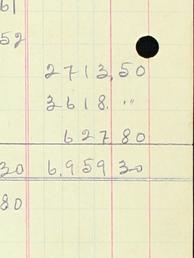 61
52
2713,50
3618. "
627 80
30 6.959 30
80